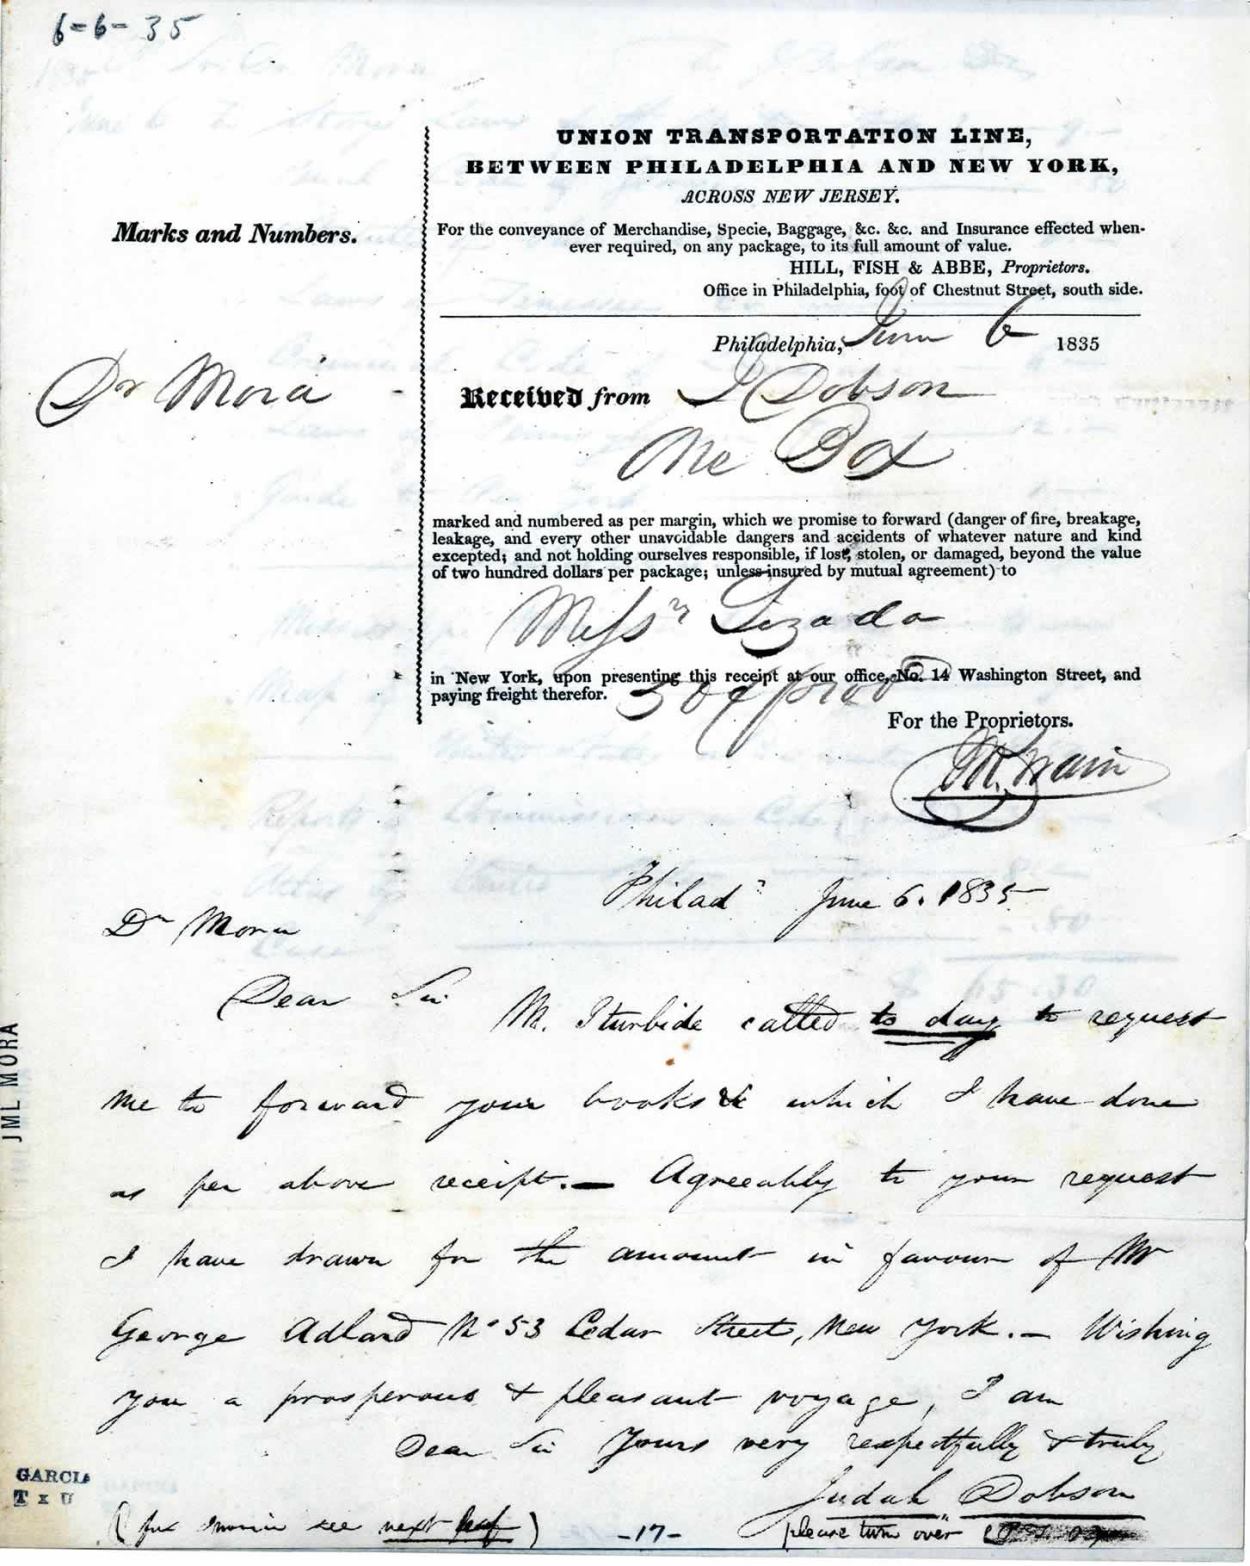 6-6-35
UNION TRANSPORTATION LINE,
BETWEEN PHILADELPHIA AND NEW YORK,
ACROSS NEW JERSEY.
Marks and Numbers.
For the conveyance of Merchandise, Specie, Baggage, &c. &c. and Insurance effected when-
ever required, on any package, to its full amount of value.
HILL, FISH & ABBE, Proprietors.
Office in Philadelphia, foot of Chestnut Street, south side.
Philadelphia, June 6 1835
Dr Mora
Received from J Dobson
One Box
marked and numbered as per margin, which we promise to forward (danger of fire, breakage,
leakage, and every other unavoidable dangers and accidents of whatever nature and kind
excepted; and not holding ourselves responsible, if lost, stolen, or damaged, beyond the value
of two hundred dollars per package; unless insured by mutual agreement) to
Messrs Lizado
in New York, upon presenting this receipt at our office, No. 14 Washington Street, and
paying freight therefor.
For the Proprietors.
Philada June 6. 1835
Dr Mora
Dear Sir
M. Iturbide called to day to request
me to forward your books & which I have done
as per above receipt. — Agreeably to your request
I have drawn for the amount in favour of Mr
George Adlard No 53 Cedar Street, New York. — Wishing
you a prosperous & pleasant voyage, I am
Dear Sir Yours very respectfully & truly
Judah Dobson
JML MORA
GARCIA
TxU
( for see next leaf )
-17-
please turn over